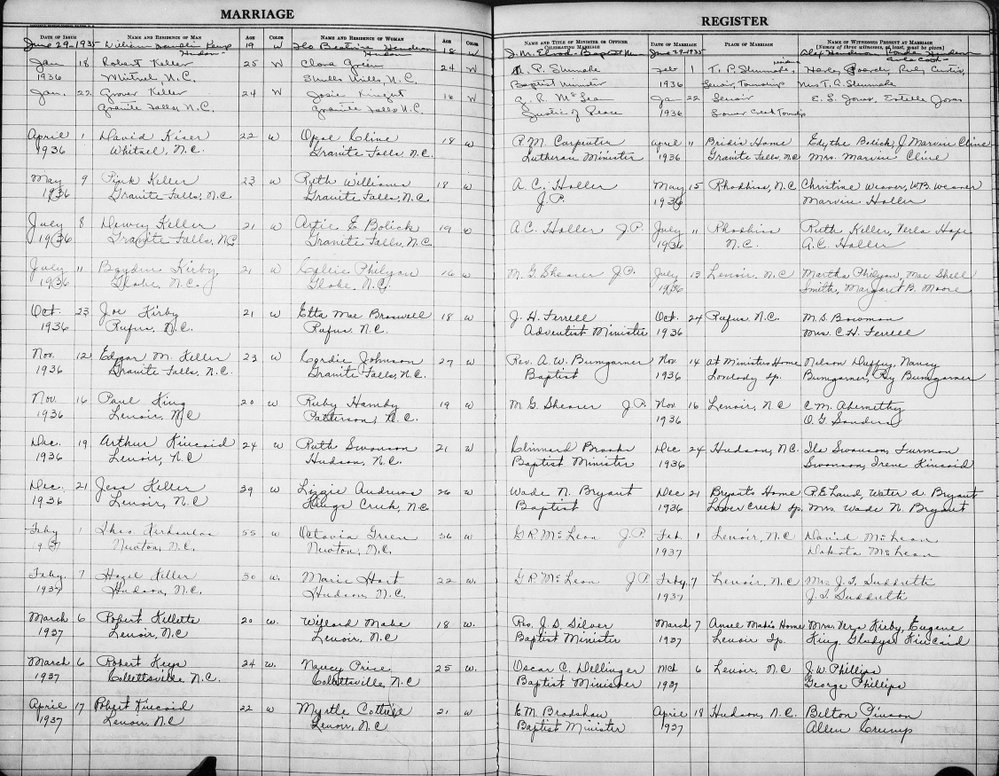 MARRIAGE REGISTER
DATE OF ISSUE NAME AND RESIDENCE OF MAN AGE COLOR NAME AND RESIDENCE OF WOMAN AGE COLOR NAME AND TITLE OF MINISTER OR OFFICER CELEBRATING MARRIAGE DATE OF MARRIAGE PLACE OF MARRIAGE NAMES OF WITNESSES PRESENT AT MARRIAGE
(Names of three witnesses, at least, must be given)
June 29, 1935 William 19 W Beatrice Henderson 18 June 29-1935
Hudson Hudson
Jan 18 Robert Keller 25 W Clara Green 24 W Feb 1
1936 N.C. Mills N.C. Baptist Minister 1936 Township
Jan. 22 Grover Keller 24 W Josie 16 W G. R. McLean Jan 22 Lenoir E. S. Jones, Estelle Jones
Granite Falls N.C. Granite Falls N.C. Justice of Peace 1936 Creek
April 1 David Kiser 22 W Opal Cline 18 W P.M. Carpenter April 11 Brides Home Edythe Bolick, J Marvin Cline
1936 Whitnel, N.C. Granite Falls, N.C. Lutheran Minister 1936 Granite Falls, N.C. Mrs. Marvin Cline
May 9 Pink Keller 23 W Ruth Williams 18 W A. C. Holler May 15 Rhodhiss, N.C. Christine Weaver, W.B. Weaver
1936 Granite Falls, N.C. Granite Falls, N.C. J.P. 1936 Marvin Holler
July 8 Dewey Keller 21 W Artie E Bolick 19 W A.C. Holler J.P. July 11 Rhodhiss Ruth Keller, Verla Hope
1936 Granite Falls, N.C. Granite Falls, N.C. 1936 N.C. A.C. Holler
July 11 Kirby 21 W Callie Philyaw 16 W M. G. Shearer J.P. July 13 Lenoir, N.C. Martha Philyaw, Mae Shell
1936 Globe, N.C. Globe, N.C. 1936 Smith, Margaret B. Moore
Oct. 23 Joe Kirby 21 W Etta Mae Braswell 18 W J. H. Ferrell Oct. 24 Rufus, N.C. M.S. Bowman
1936 Rufus, N.C. Rufus, N.C. Adventist Minister 1936 Mrs. C.H. Ferrell
Nov. 12 Edgar M. Keller 23 W Cordie Johnson 27 W Rev. A. W. Bumgarner Nov 14 at Ministers Home Nelson Duffey, Nancy
1936 Granite Falls, N.C. Granite Falls, N.C. Baptist 1936 Lovelady Tp. Bumgarner, Ray Bumgarner
Nov. 16 Paul King 20 W Ruby Hamby 19 W M. G. Shearer J.P. Nov 16 Lenoir, N.C. C.M. Abernethy
1936 Lenoir, N.C. Patterson, N.C. 1936 O. G. Sanders
Dec. 19 Arthur Kincaid 24 W Ruth Swanson 21 W Clinnard Brooks Dec 24 Hudson, N.C. Ila Swanson, Furmon
1936 Lenoir, N.C. Hudson, N.C. Baptist Minister 1936 Swanson, Irene Kincaid
Dec. 21 Jess Keller 39 W Lizzie Andrews 26 W Wade N. Bryant Dec 21 Bryants Home P.E. Laud, Water A. Bryant
1936 Lenoir, N.C. Kings Creek, N.C. Baptist 1936 Lower Creek Tp. Mrs. Wade N. Bryant
Feby 1 55 W Octavia Green 56 W G.R. McLean J.P. Feb. 1 Lenoir, N.C. David McLean
1937 Newton, N.C. Newton, N.C. 1937 Dakota McLean
Feby. 7 Hazel Keller 30 W. Marie Hart 22 W. G.R. McLean J.P. Feby. 7 Lenoir, N.C. Mrs J. T. Suddreth
1937 Hudson, N.C. Hudson, N.C. 1937 J. T. Suddreth
March 6 Robert Killette 20 W. Willard Mabe 18 W. Rev. J. D. Silver March 7 Ansel Mabe's Home Mrs. Vera Kirby, Eugene
1937 Lenoir, N.C. Lenoir, N.C. Baptist Minister 1937 Lenoir Tp. King, Gladys Kincaid
March 6 Robert Keys 24 W. Nancy Price 25 W. Oscar C. Dellinger Mch 6 Lenoir, N.C. J.W. Phillips
1937 Collettsville, N.C. Collettsville, N.C. Baptist Minister 1937 George Phillips
April 17 Robert Kincaid 22 W Myrtle Cottrell 21 W E.M. Bradshaw April 18 Hudson, N.C. Belton Pinson
1937 Lenoir, N.C. Lenoir, N.C. Baptist Minister 1937 Allen Crump